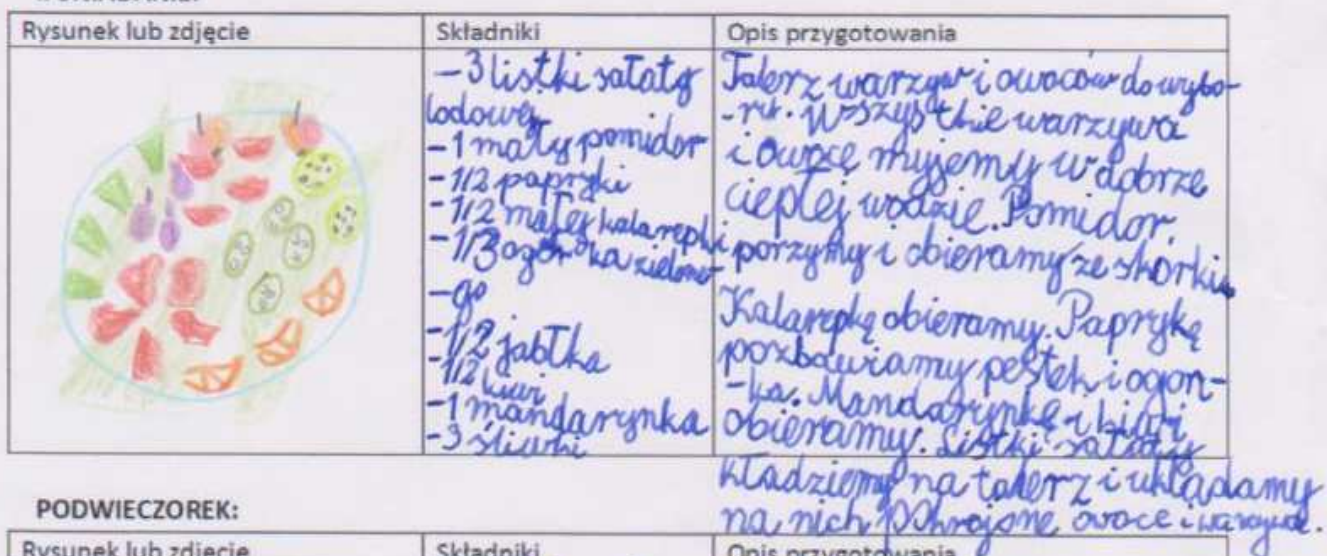 Rysunek lub zdjęcie
Składniki
Opis przygotowania
-3 listki sałaty
lodowej
-1 mały pomidor
-1/2 papryki
-1/2 małej kalarepki
-1/3 ogórka zielone-
-go
-1/2 jabłka
-1/2 kiwi
-1 mandarynka
-3 śliwki
Talerz warzyw i owoców do wybo-
-ru. Wszystkie warzywa
i owoce myjemy w dobrze
ciepłej wodzie. Pomidor
porzymy i obieramy ze skórki.
Kalarepkę obieramy. Paprykę
pozbawiamy pestek i ogon-
-ka. Mandarynkę i kiwi
obieramy. Listki sałaty
kładziemy na talerz i układamy
na nich pokrojone owoce i warzywa.
PODWIECZOREK:
Rysunek lub zdjęcie
Składniki
Opis przygotowania